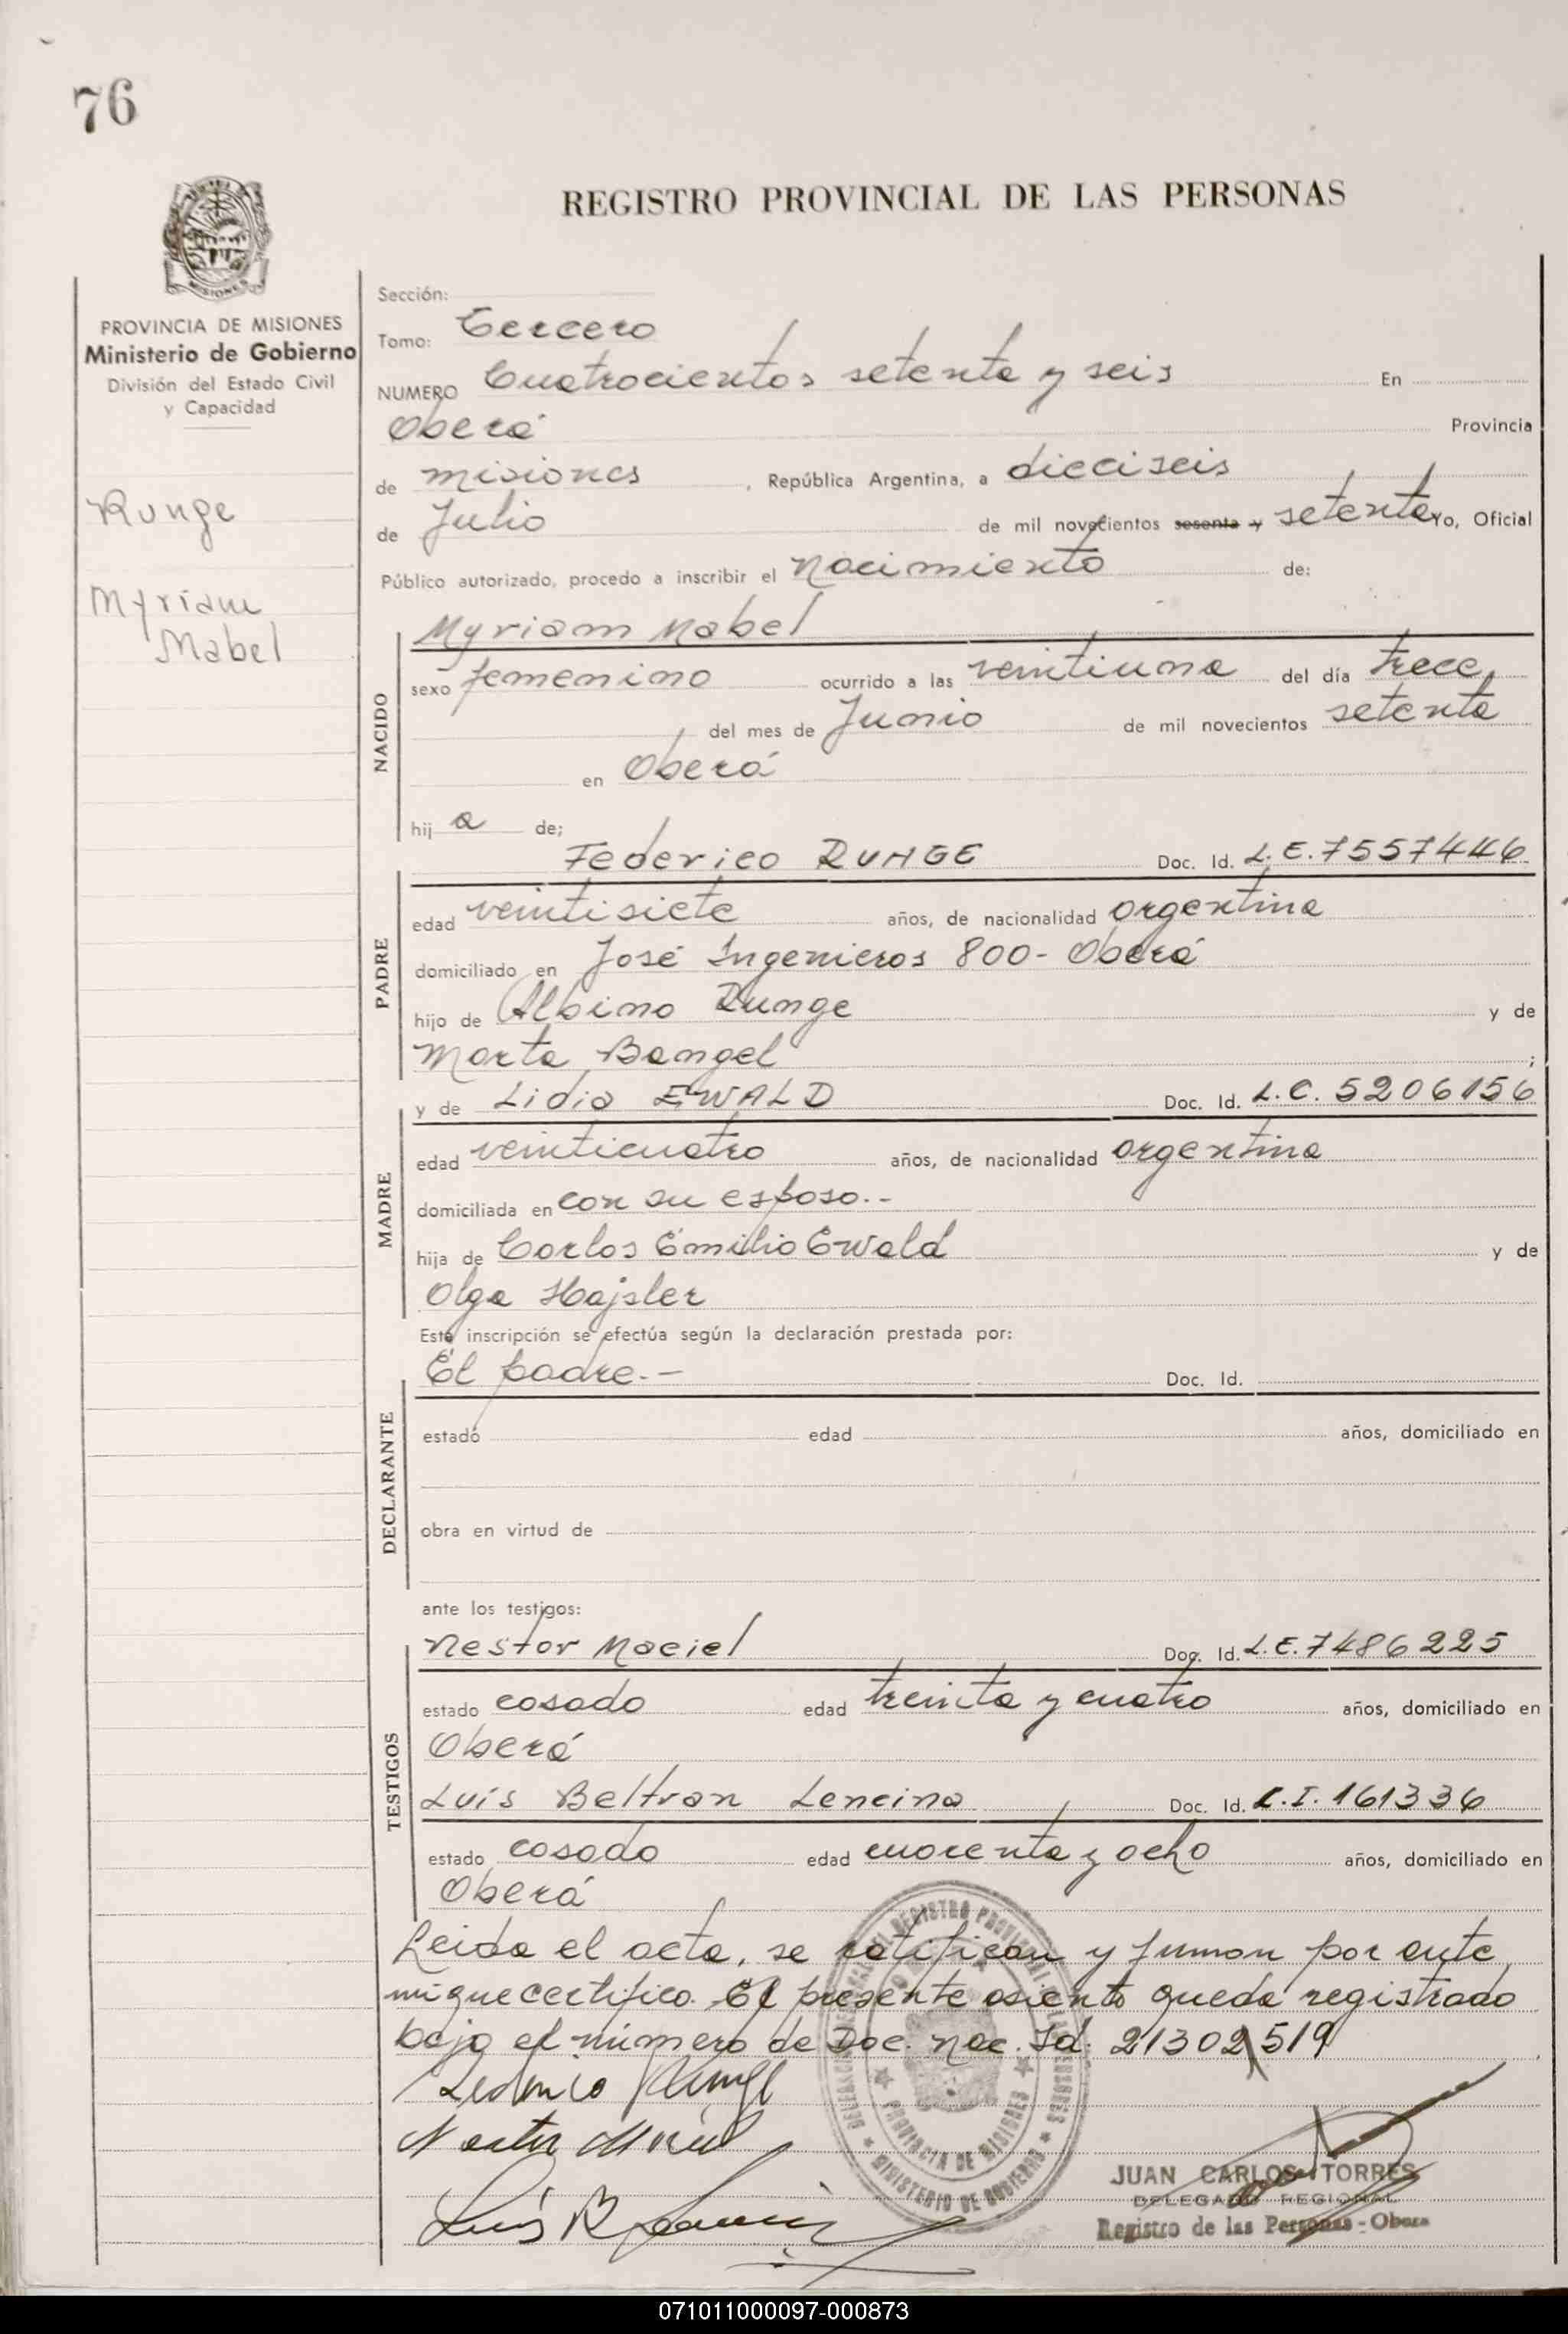 76
REGISTRO PROVINCIAL DE LAS PERSONAS
MISIONES
PROVINCIA DE MISIONES
Ministerio de Gobierno
División del Estado Civil
y Capacidad
Runge
Myriam
Mabel
Sección:
Tomo: Tercero
NUMERO Cuatrocientos setenta y seis En
Oberá Provincia
de misiones, República Argentina, a dieciseis
de Julio de mil novecientos sesenta y setenta Yo, Oficial
Público autorizado, procedo a inscribir el nacimiento de:
NACIDO
Myriam Mabel
sexo femenino ocurrido a las veintiuna del día trece
del mes de Junio de mil novecientos setenta
en Oberá
hija de;
PADRE
Federico RUNGE Doc. Id. L.E. 7557446
edad veintisiete años, de nacionalidad argentina
domiciliado en José Ingenieros 800- Oberá
hijo de Albino Runge y de
Marta Bangel ;
MADRE
y de Lidia EWALD Doc. Id. L.C. 5206156
edad veinticuatro años, de nacionalidad argentina
domiciliada en con su esposo.-
hija de Carlos Emilio Ewald y de
Olga Hajsler
Esta inscripción se efectúa según la declaración prestada por:
DECLARANTE
El padre.- Doc. Id.
estado edad años, domiciliado en
obra en virtud de
ante los testigos:
TESTIGOS
Nestor Maciel Doc. Id. L.E. 7486225
estado casado edad treinta y cuatro años, domiciliado en
Oberá
Luis Beltran Lencina Doc. Id. C.I. 161336
estado casado edad cuarenta y ocho años, domiciliado en
Oberá
Leida el acta, se ratifican y firman por ante
mi que certifico. El presente asiento queda registrado
bajo el número de Doc. nac. Id. 21302519
Federico Runge
Nestor Maciel
Luis B Lencina
PROVINCIA DE MISIONES
MINISTERIO DE GOBIERNO
JUAN CARLOS TORRES
DELEGADO REGIONAL
Registro de las Personas - Obera
071011000097-000873